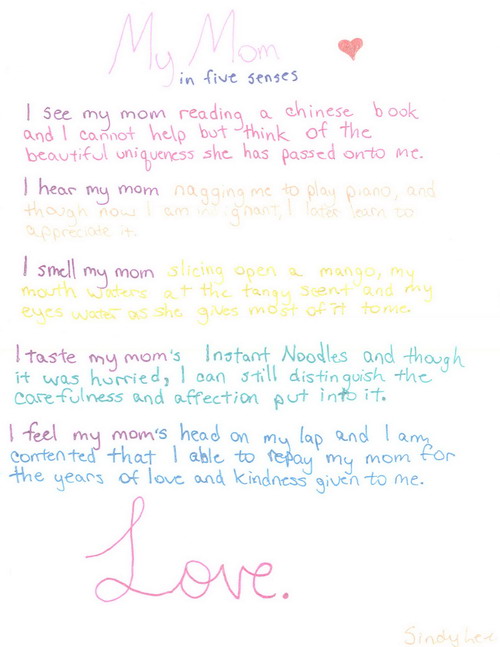 My Mom
in five senses
I see my mom reading a chinese book
and I cannot help but think of the
beautiful uniqueness she has passed onto me.
I hear my mom nagging me to play piano, and
though now I am indignant, I later learn to
appreciate it.
I smell my mom slicing open a mango, my
mouth waters at the tangy scent and my
eyes water as she gives most of it to me.
I taste my mom's Instant Noodles and though
it was hurried, I can still distinguish the
carefulness and affection put into it.
I feel my mom's head on my lap and I am
contented that I able to repay my mom for
the years of love and kindness given to me.
Love.
Sindy Lee